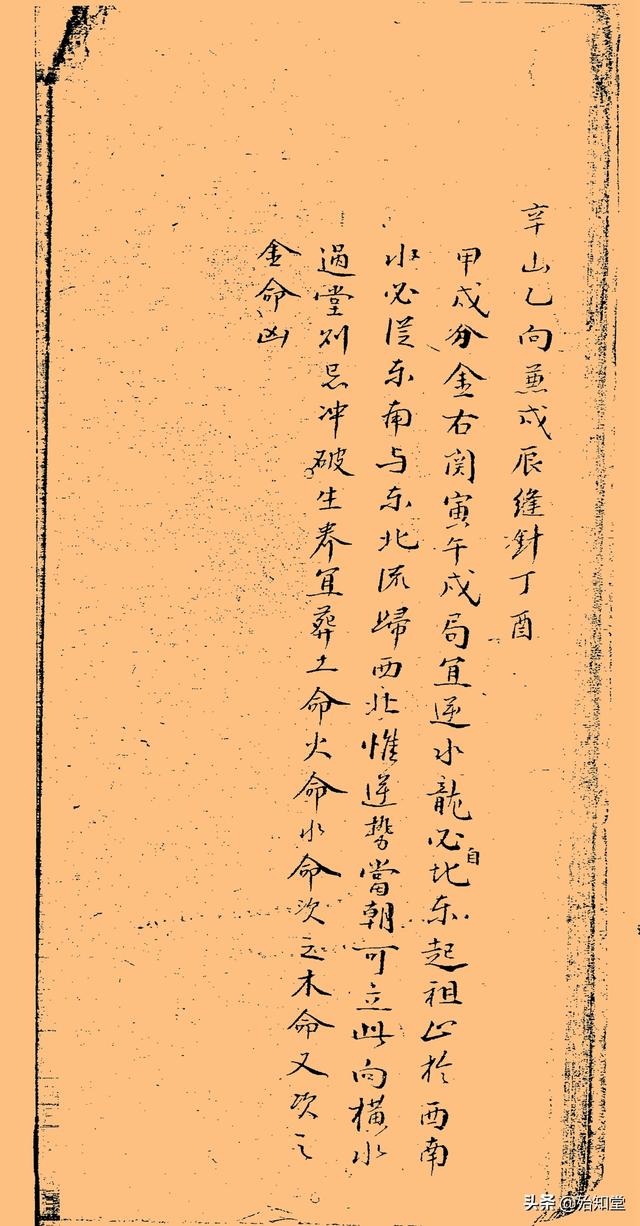 辛山乙向兼戌辰缝針丁酉
甲戌分金右関寅午戌局宜逆水龍必自北东起祖止於西南
水必従东南与东北流歸西北惟逆势當朝可立此向横水
過堂则忌冲破生养宜葬土命火命水命次之木命又次之
金命凶
头条@治知堂